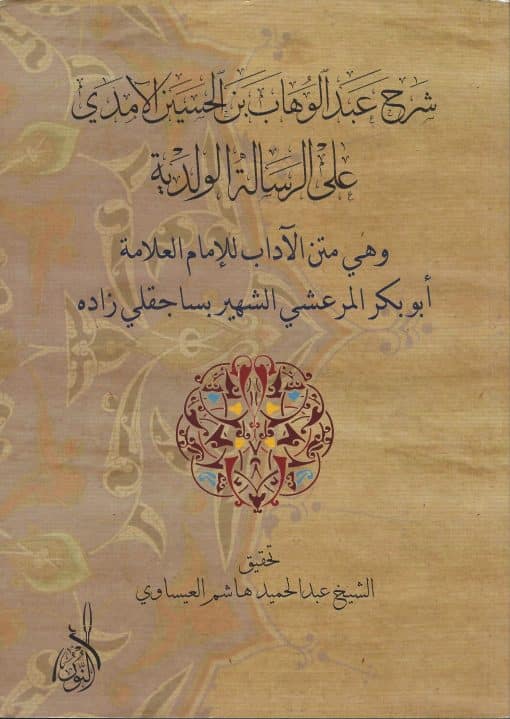 شرح عبد الوهاب بن الحسين الآمدي
على الرسالة الولدية
وهي متن الآداب للإمام العلامة
أبو بكر المرعشي الشهير بساجقلي زاده
تحقيق
الشيخ عبد الحميد هاشم العيساوي
النور